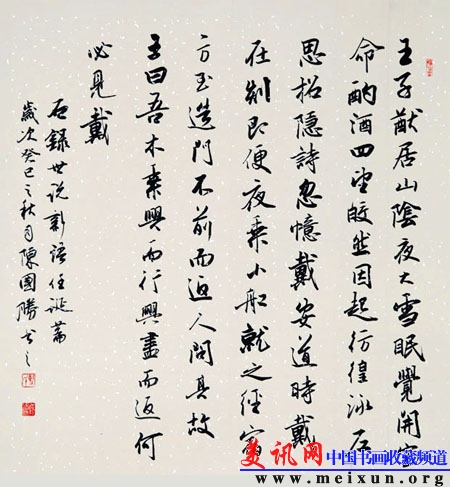 王子猷居山陰夜大雪眠覺開室
命酌酒四望皎然因起彷徨詠左
思招隱詩忽憶戴安道時戴
在剡即便夜乘小船就之經宿
方至造門不前而返人問其故
王曰吾本乘興而行興盡而返何
必見戴
右錄世說新語任誕篇
歲次癸巳之秋月陳國勝書之
美讯网
中国书画收藏频道
www.meixun.org